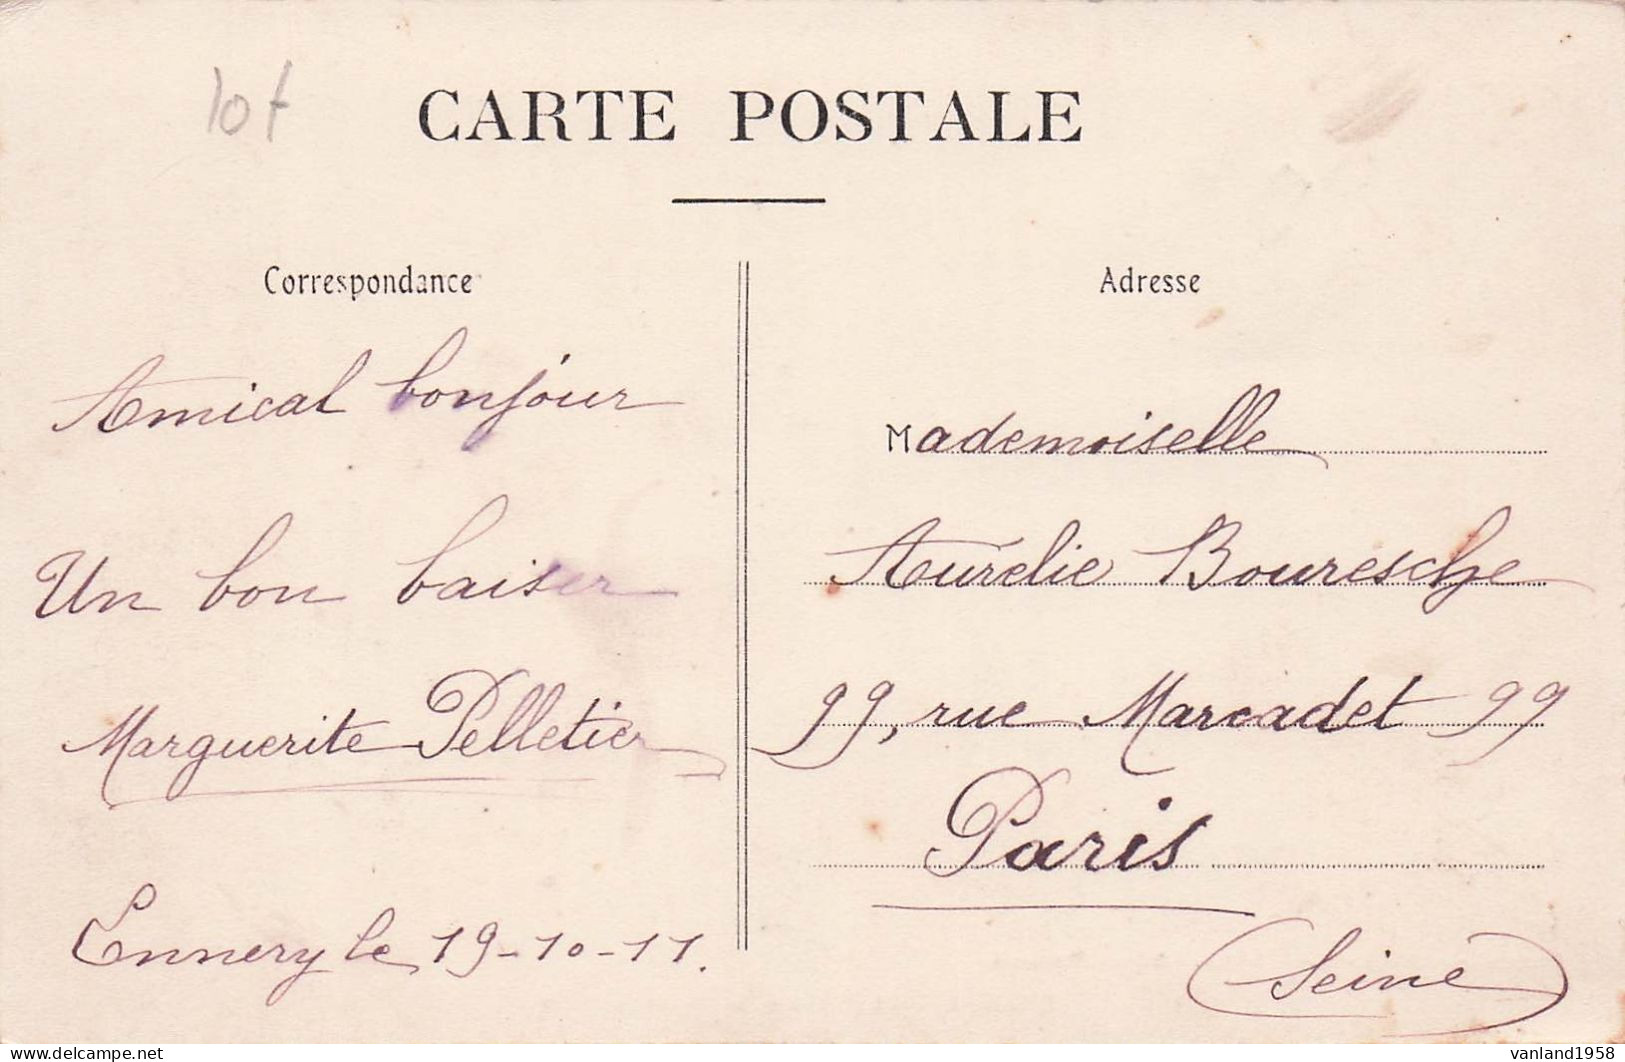 10f
CARTE POSTALE
Correspondance
Amical bonjour
Un bon baiser
Marguerite Pelletier
Ennery le 19-10-11.
Adresse
Mademoiselle
Aurélie Bouresche
99, rue Marcadet 99
Paris
(Seine)
vanland1958